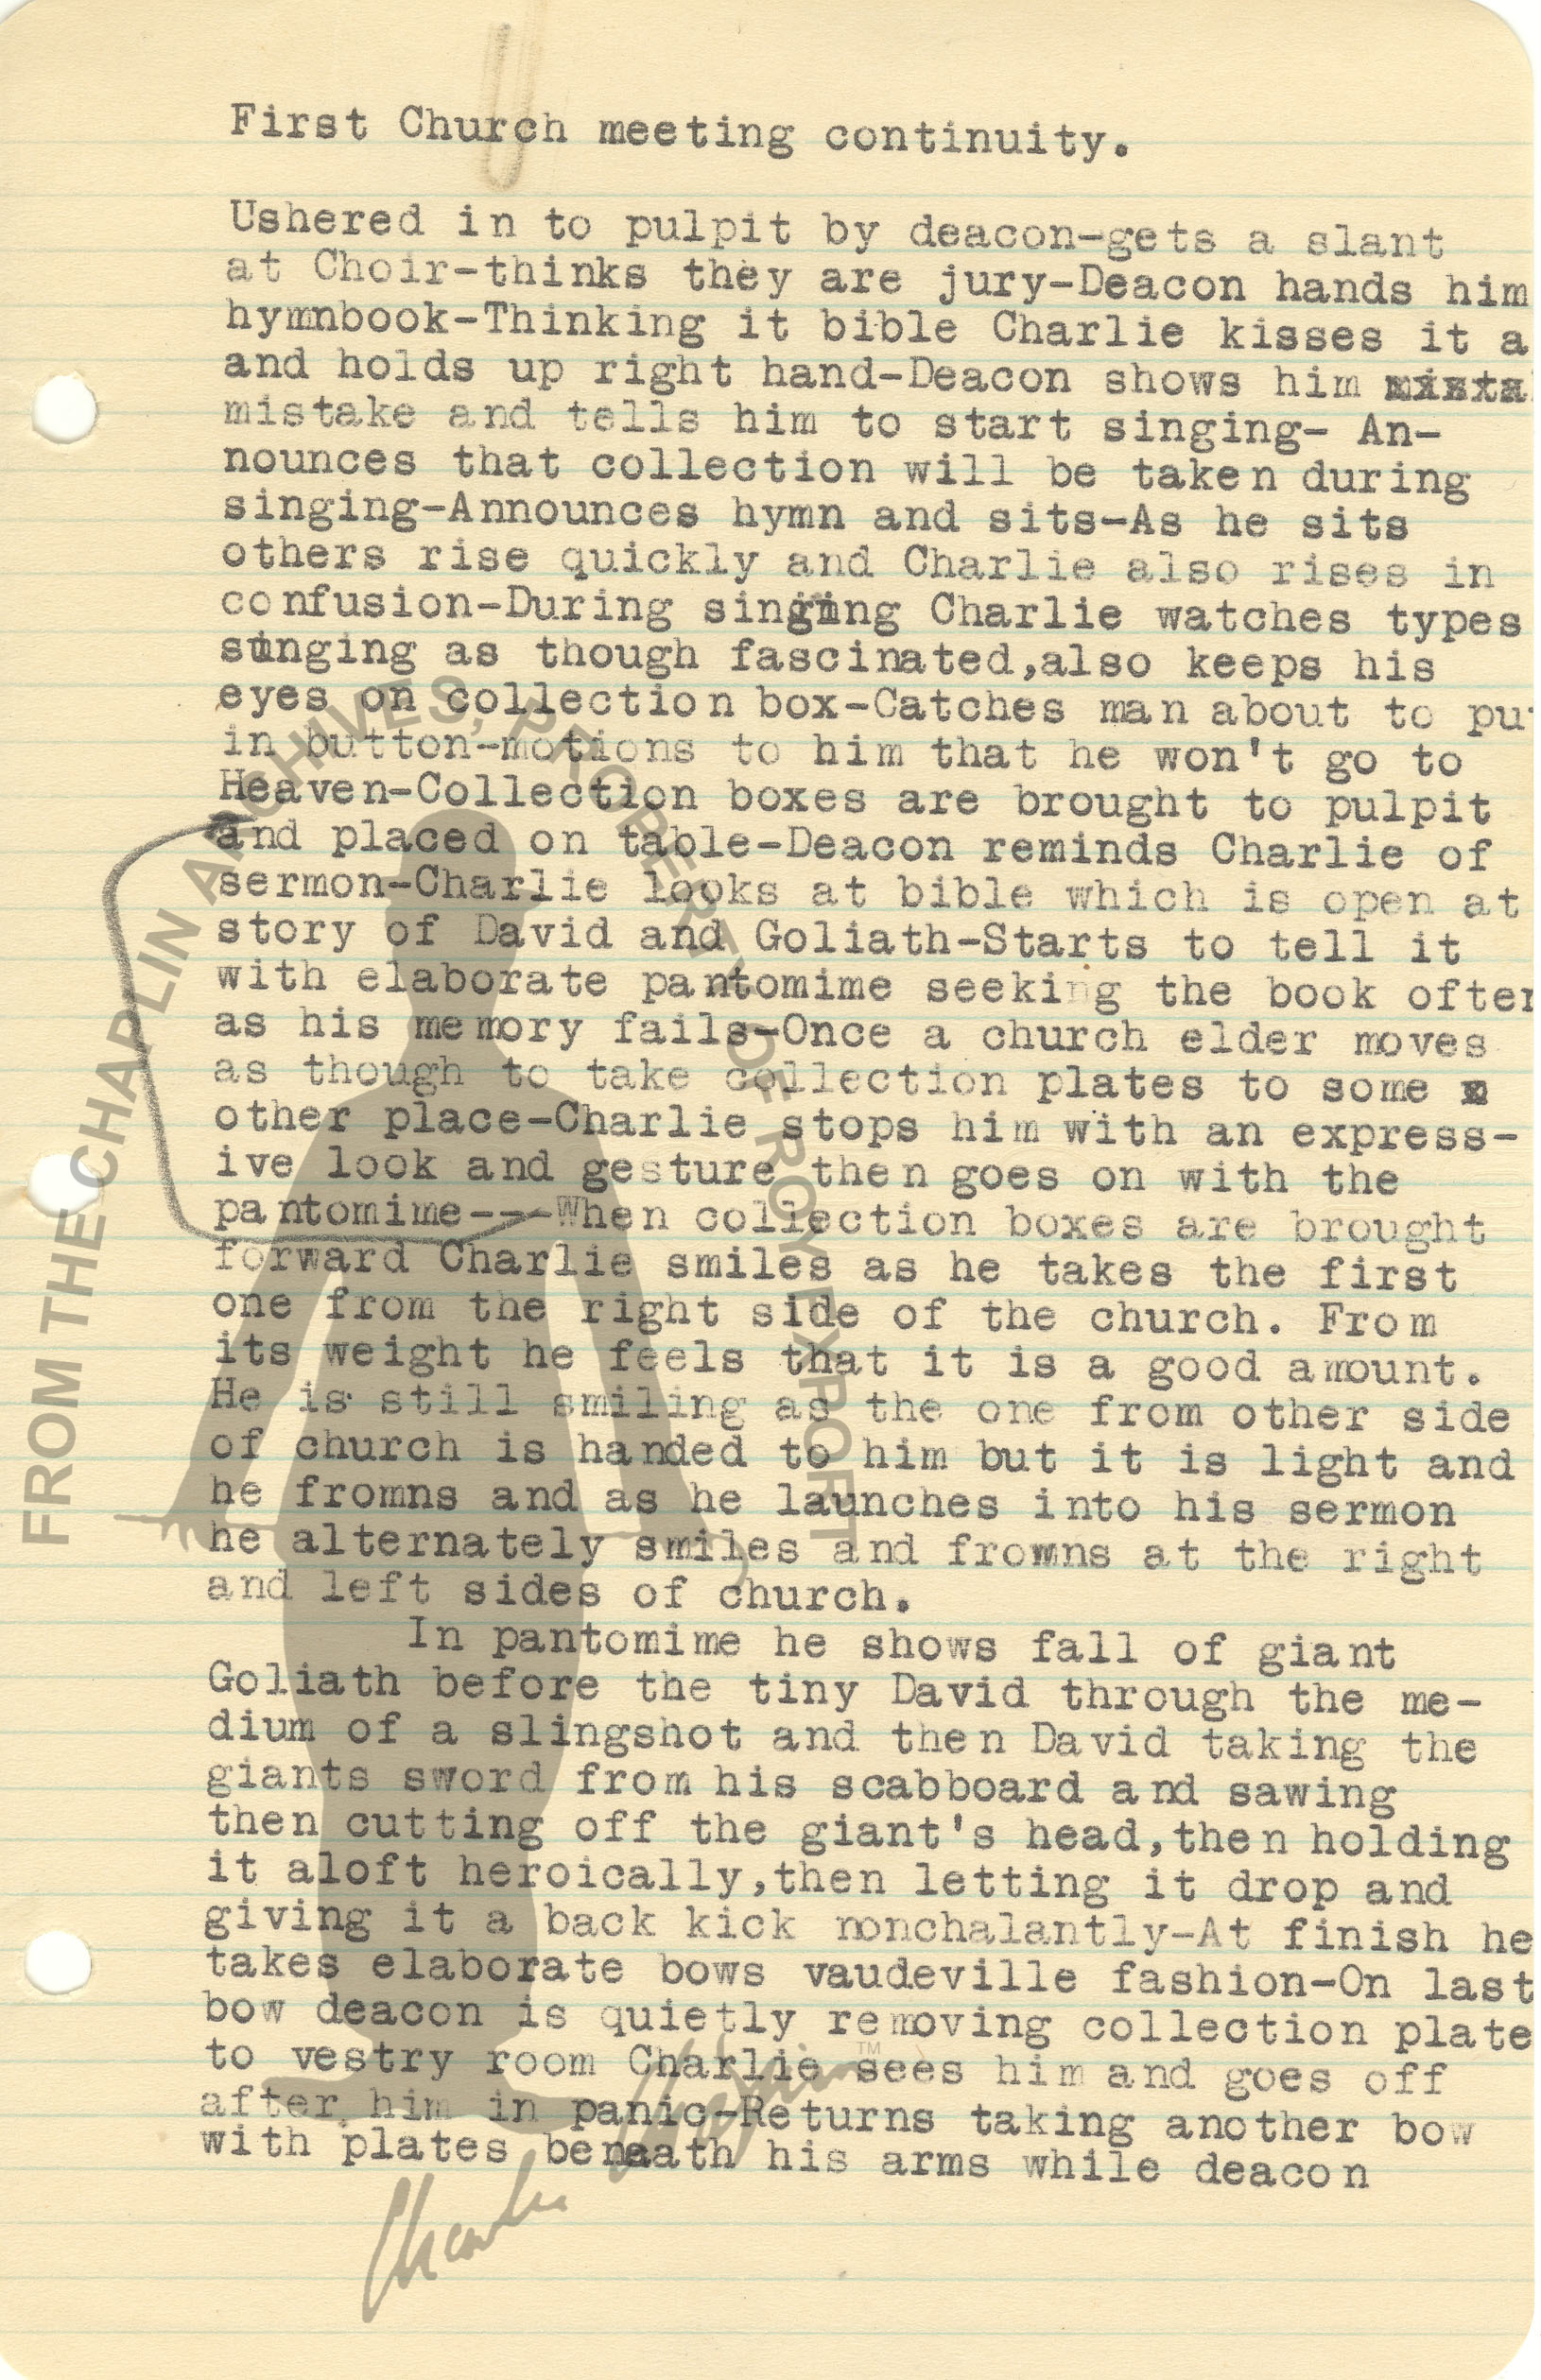 First Church meeting continuity.
Ushered in to pulpit by deacon-gets a slant
at Choir-thinks they are jury-Deacon hands him
hymnbook-Thinking it bible Charlie kisses it a
and holds up right hand-Deacon shows him mista
mistake and tells him to start singing- An-
nounces that collection will be taken during
singing-Announces hymn and sits-As he sits
others rise quickly and Charlie also rises in
confusion-During singing Charlie watches types
singing as though fascinated,also keeps his
eyes on collection box-Catches man about to pu
in button-motions to him that he won't go to
Heaven-Collection boxes are brought to pulpit
and placed on table-Deacon reminds Charlie of
sermon-Charlie looks at bible which is open at
story of David and Goliath-Starts to tell it
with elaborate pantomime seeking the book often
as his memory fails-Once a church elder moves
as though to take collection plates to some x
other place-Charlie stops him with an express-
ive look and gesture then goes on with the
pantomime---When collection boxes are brought
forward Charlie smiles as he takes the first
one from the right side of the church. From
its weight he feels that it is a good amount.
He is still smiling as the one from other side
of church is handed to him but it is light and
he fromns and as he launches into his sermon
he alternately smiles and frowns at the right
and left sides of church.
In pantomime he shows fall of giant
Goliath before the tiny David through the me-
dium of a slingshot and then David taking the
giants sword from his scabboard and sawing
then cutting off the giant's head,then holding
it aloft heroically,then letting it drop and
giving it a back kick nonchalantly-At finish he
takes elaborate bows vaudeville fashion-On last
bow deacon is quietly removing collection plate
to vestry room Charlie sees him and goes off
after him in panic-Returns taking another bow
with plates beneath his arms while deacon
FROM THE CHAPLIN ARCHIVES, PROPERTY OF ROY EXPORT
Charlie Chaplin™